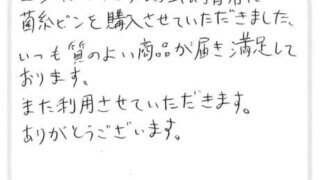 菌糸ビンを購入させていただきました。
いつも質のよい商品が届き満足して
おります。
また利用させていただきます。
ありがとうございます。